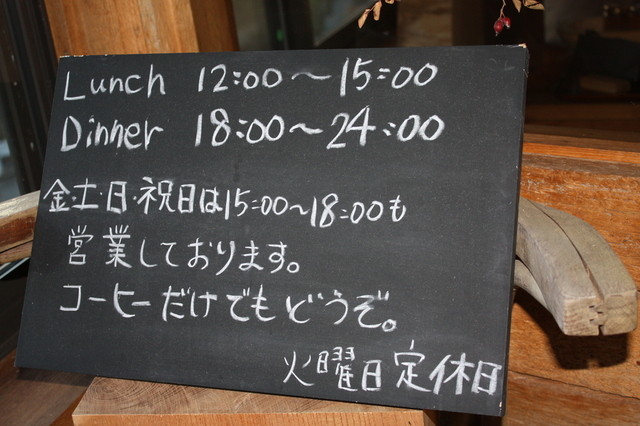 Lunch 12:00〜15:00
Dinner 18:00〜24:00
金・土・日・祝日は15:00〜18:00も
営業しております。
コーヒーだけでもどうぞ。
火曜日定休日